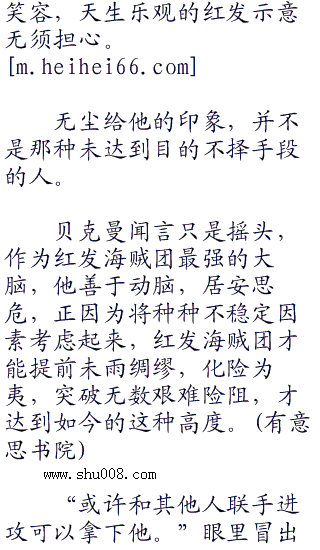 笑容，天生乐观的红发示意
无须担心。
[m.heihei66.com]
无尘给他的印象，并不
是那种未达到目的不择手段
的人。
贝克曼闻言只是摇头，
作为红发海贼团最强的大
脑，他善于动脑，居安思
危，正因为将种种不稳定因
素考虑起来，红发海贼团才
能提前未雨绸缪，化险为
夷，突破无数艰难险阻，才
达到如今的这种高度。(有意
思书院)
www.shu008.com
“或许和其他人联手进
攻可以拿下他。”眼里冒出